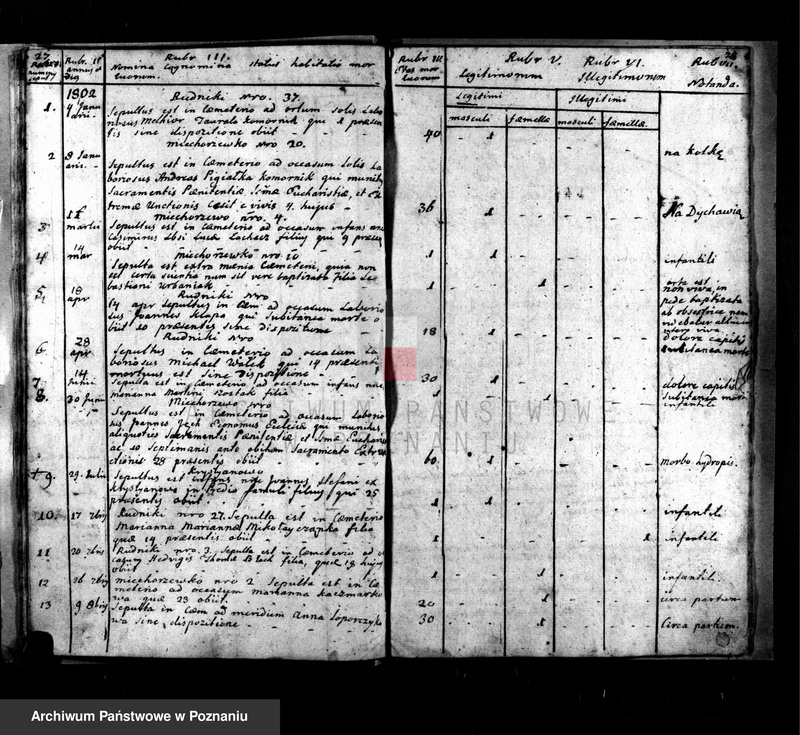 27
Rubr. I.
numery
Rubr. II
annus et
dies
Rubr III.
Nomina Cognomina status habitatio mor
tuorum.
1802
Rudniki Nro. 37.
1. 4 Janu
arii Sepultus est in Cæmeterio ad ortum Solis Labo
riosus Melchior komornik qui 1 præsen
tis sine dispositione obiit
Miechorzewko Nro 20.
2 8 Janu
arii Sepultus est in Cæmeterio ad occasum Solis La
boriosus Andreas Pigiatka komornik qui munitus
Sacramentis Pænitentiæ, Ssmæ Eucharistiæ, et Ex
tremæ Unctionis cessit e vivis 4. hujus
Miechorzewo Nro. 4.
3 martii Sepultus est in Cæmeterio ad occasum infans
Casimirus filius qui 9 præsen
obiit
Miechorzewko Nro. 10
4 14
mar Sepulta est extra mænia Cæmeterii, quia non
est certa scientia num sit vere baptizata Filia Se
bastiani Urbaniak
Rudniki Nro
5. 18
apr 14 apr Sepultus in Cæm ad occasum Laborio
sus Joannes Klopa qui Subitanea morte o
biit 20 præsentis sine dispositione
Rudniki Nro
6. 28
apr Sepultus in Cæmeterio ad occasum La
boriosus Michael Walek qui 19 præsenti
mortuus est sine dispositione
7. 14
Junii Sepulta est in Cæmeterio ad occasum infans
Marianna Martini filia
Miechorzewo Nro
8. 30 Junii Sepultus est in Cæmeterio ad occasum Laborio
sus Joannes qui munitus
aliquoties Sacramentis Pænitentiæ et Ssmæ Eucharis
ac 10 Septimanis ante obitum Sacramento Extre
ctionis 28 præsentis obiit
Krystyanowo
+ 9. 29. Julii Sepultus est infans Joannis Stefani ex
Krystyanowo famuli filius qui 25
præsentis obiit
10. 17 7bris Rudniki Nro 27. Sepulta est in Cæmeterio
Marianna Mariannæ Mikołayczanka filia
quæ 14 præsentis obiit
11 20 7bris Rudniki Nro. 7. Sepulta est in Cæmeterio ad oc
casum Hedvigis Thomæ filia, quæ 19 hujus
obiit
12 26 7bris Miechorzewko Nro 2 Sepulta est in Cæ
meterio ad occasum Marianna Kaczmarko
wa quæ 23 obiit
13 9 8bris Sepulta in Cæm ad meridiem Anna
wa sine dispositione
Rubr IV.
Ætas mor
tuorum
Rubr V. Rubr VI.
Legitimorum Illegitimorum
Rubr VII.
Notanda.
Legitimi Illegitimi
masculi fæmellæ masculi fæmellæ
40 1 na kolkę
36 1 Na Dychawicę
1 1 infantili
1 1
non viva, in
pede baptizata
ab obstetrice
18 1 dolore capitis
subitanea morte
30 1 dolore capitis
1 1 Subitanea morte
infantili
60 1 morbo hydropis.
1 1 infantili
1 1 infantili
1 1 infantili
20 1 circa partum
30 1 Circa partum.
ARCHIWUM PAŃSTWOWE
W POZNANIU
Archiwum Państwowe w Poznaniu